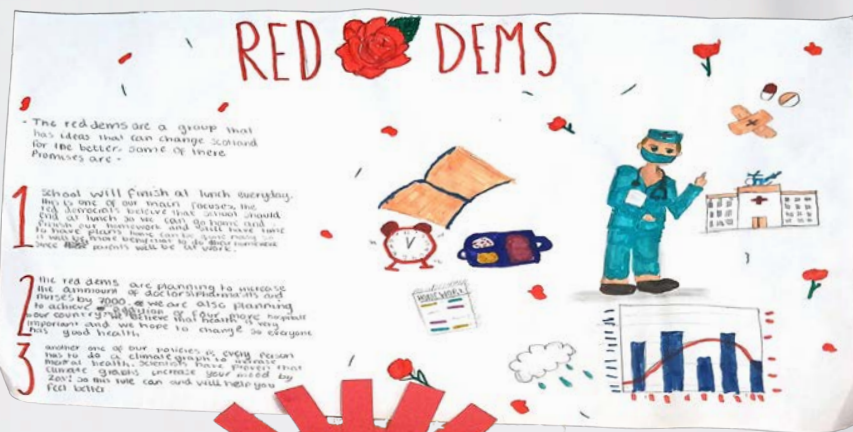 RED DEMS
- The red dems are a group that
has ideas that can change scotland
for the better. some of there
Promises are -
1 school will finish at lunch everyday.
this is one of our main focuses, the
red democrats believe that school should
end at lunch so we can go home and
finish our homework and still have time
to have plans home can be
it will be more beneficial to do their homework
since parents will be at work.
2 the red dems are planning to increase
the ammount of doctors, pharmasists and
nurses by 7000. we are also planning
to achieve addition of four more hospitals
our country. We believe that health is very
important and we hope to change so everyone
has good health
3 another one of our policies is every person
has to do a climate graph to increase
mental health. scientists have proven that
climate graphs increase your mood by
20%! so this rule can and will help you
feel better
HOMEWORK